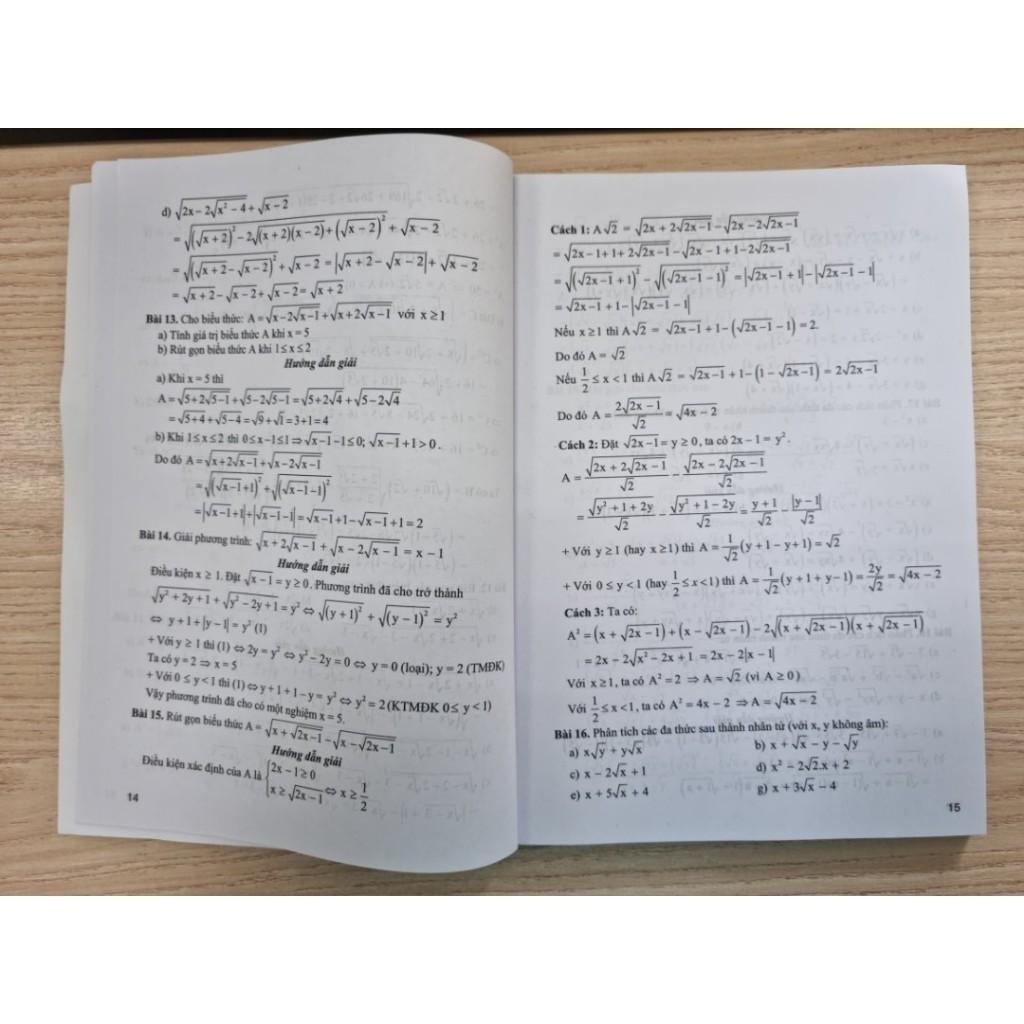 d) √(2x − 2√(x² − 4)) + √(x − 2)
= √((√(x + 2))² − 2√((x + 2)(x − 2)) + (√(x − 2))²) + √(x − 2)
= √((√(x + 2) − √(x − 2))²) + √(x − 2) = |√(x + 2) − √(x − 2)| + √(x − 2)
= √(x + 2) − √(x − 2) + √(x − 2) = √(x + 2)
Bài 13. Cho biểu thức: A = √(x − 2√(x − 1)) + √(x + 2√(x − 1)) với x ≥ 1
a) Tính giá trị biểu thức A khi x = 5
b) Rút gọn biểu thức A khi 1 ≤ x ≤ 2
Hướng dẫn giải
a) Khi x = 5 thì
A = √(5 + 2√(5 − 1)) + √(5 − 2√(5 − 1)) = √(5 + 2√4) + √(5 − 2√4)
= √(5 + 4) + √(5 − 4) = √9 + √1 = 3 + 1 = 4
b) Khi 1 ≤ x ≤ 2 thì 0 ≤ x − 1 ≤ 1 ⇒ √(x − 1) − 1 ≤ 0; √(x − 1) + 1 > 0.
Do đó A = √(x + 2√(x − 1)) + √(x − 2√(x − 1))
= √((√(x − 1) + 1)²) + √((√(x − 1) − 1)²)
= |√(x − 1) + 1| + |√(x − 1) − 1| = √(x − 1) + 1 − √(x − 1) + 1 = 2
Bài 14. Giải phương trình: √(x + 2√(x − 1)) + √(x − 2√(x − 1)) = x − 1
Hướng dẫn giải
Điều kiện x ≥ 1. Đặt √(x − 1) = y ≥ 0. Phương trình đã cho trở thành
√(y² + 2y + 1) + √(y² − 2y + 1) = y² ⇔ √((y + 1)²) + √((y − 1)²) = y²
⇔ y + 1 + |y − 1| = y² (1)
+ Với y ≥ 1 thì (1) ⇔ 2y = y² ⇔ y² − 2y = 0 ⇔ y = 0 (loại); y = 2 (TMĐK)
Ta có y = 2 ⇒ x = 5
+ Với 0 ≤ y < 1 thì (1) ⇔ y + 1 + 1 − y = y² ⇔ y² = 2 (KTMĐK 0 ≤ y < 1)
Vậy phương trình đã cho có một nghiệm x = 5.
Bài 15. Rút gọn biểu thức A = √(x + √(2x − 1)) − √(x − √(2x − 1))
Hướng dẫn giải
Điều kiện xác định của A là {2x − 1 ≥ 0; x ≥ √(2x − 1) ⇔ x ≥ 1/2
14
Cách 1: A√2 = √(2x + 2√(2x − 1)) − √(2x − 2√(2x − 1))
= √(2x − 1 + 1 + 2√(2x − 1)) − √(2x − 1 + 1 − 2√(2x − 1))
= √((√(2x − 1) + 1)²) − √((√(2x − 1) − 1)²) = |√(2x − 1) + 1| − |√(2x − 1) − 1|
= √(2x − 1) + 1 − |√(2x − 1) − 1|
Nếu x ≥ 1 thì A√2 = √(2x − 1) + 1 − (√(2x − 1) − 1) = 2.
Do đó A = √2
Nếu 1/2 ≤ x < 1 thì A√2 = √(2x − 1) + 1 − (1 − √(2x − 1)) = 2√(2x − 1)
Do đó A = 2√(2x − 1)/√2 = √(4x − 2)
Cách 2: Đặt √(2x − 1) = y ≥ 0, ta có 2x − 1 = y².
A = √(2x + 2√(2x − 1))/√2 − √(2x − 2√(2x − 1))/√2
= √(y² + 1 + 2y)/√2 − √(y² + 1 − 2y)/√2 = (y + 1)/√2 − |y − 1|/√2
+ Với y ≥ 1 (hay x ≥ 1) thì A = 1/√2 (y + 1 − y + 1) = √2
+ Với 0 ≤ y < 1 (hay 1/2 ≤ x < 1) thì A = 1/√2 (y + 1 + y − 1) = 2y/√2 = √(4x − 2)
Cách 3: Ta có:
A² = (x + √(2x − 1)) + (x − √(2x − 1)) − 2√((x + √(2x − 1))(x + √(2x − 1)))
= 2x − 2√(x² − 2x + 1) = 2x − 2|x − 1|
Với x ≥ 1, ta có A² = 2 ⇒ A = √2 (vì A ≥ 0)
Với 1/2 ≤ x < 1, ta có A² = 4x − 2 ⇒ A = √(4x − 2)
Bài 16. Phân tích các đa thức sau thành nhân tử (với x, y không âm):
a) x√y + y√x b) x + √x − y − √y
c) x − 2√x + 1 d) x² − 2√2.x + 2
e) x + 5√x + 4 g) x + 3√x − 4
15